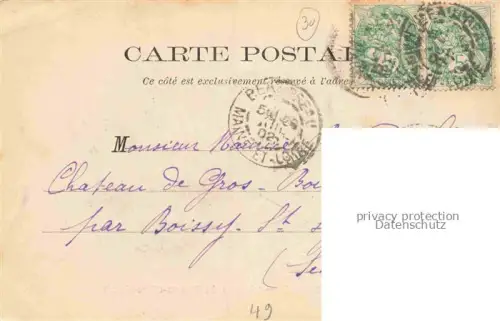 30
CARTE POSTAL
Ce côté est exclusivement réservé à l'adre
BEAUPREAU
MAINE-ET-LOIRE
Monsieur Maurice
Chateau de Gros-Bo
par Boissy-St
(Se
privacy protection
Datenschutz
49